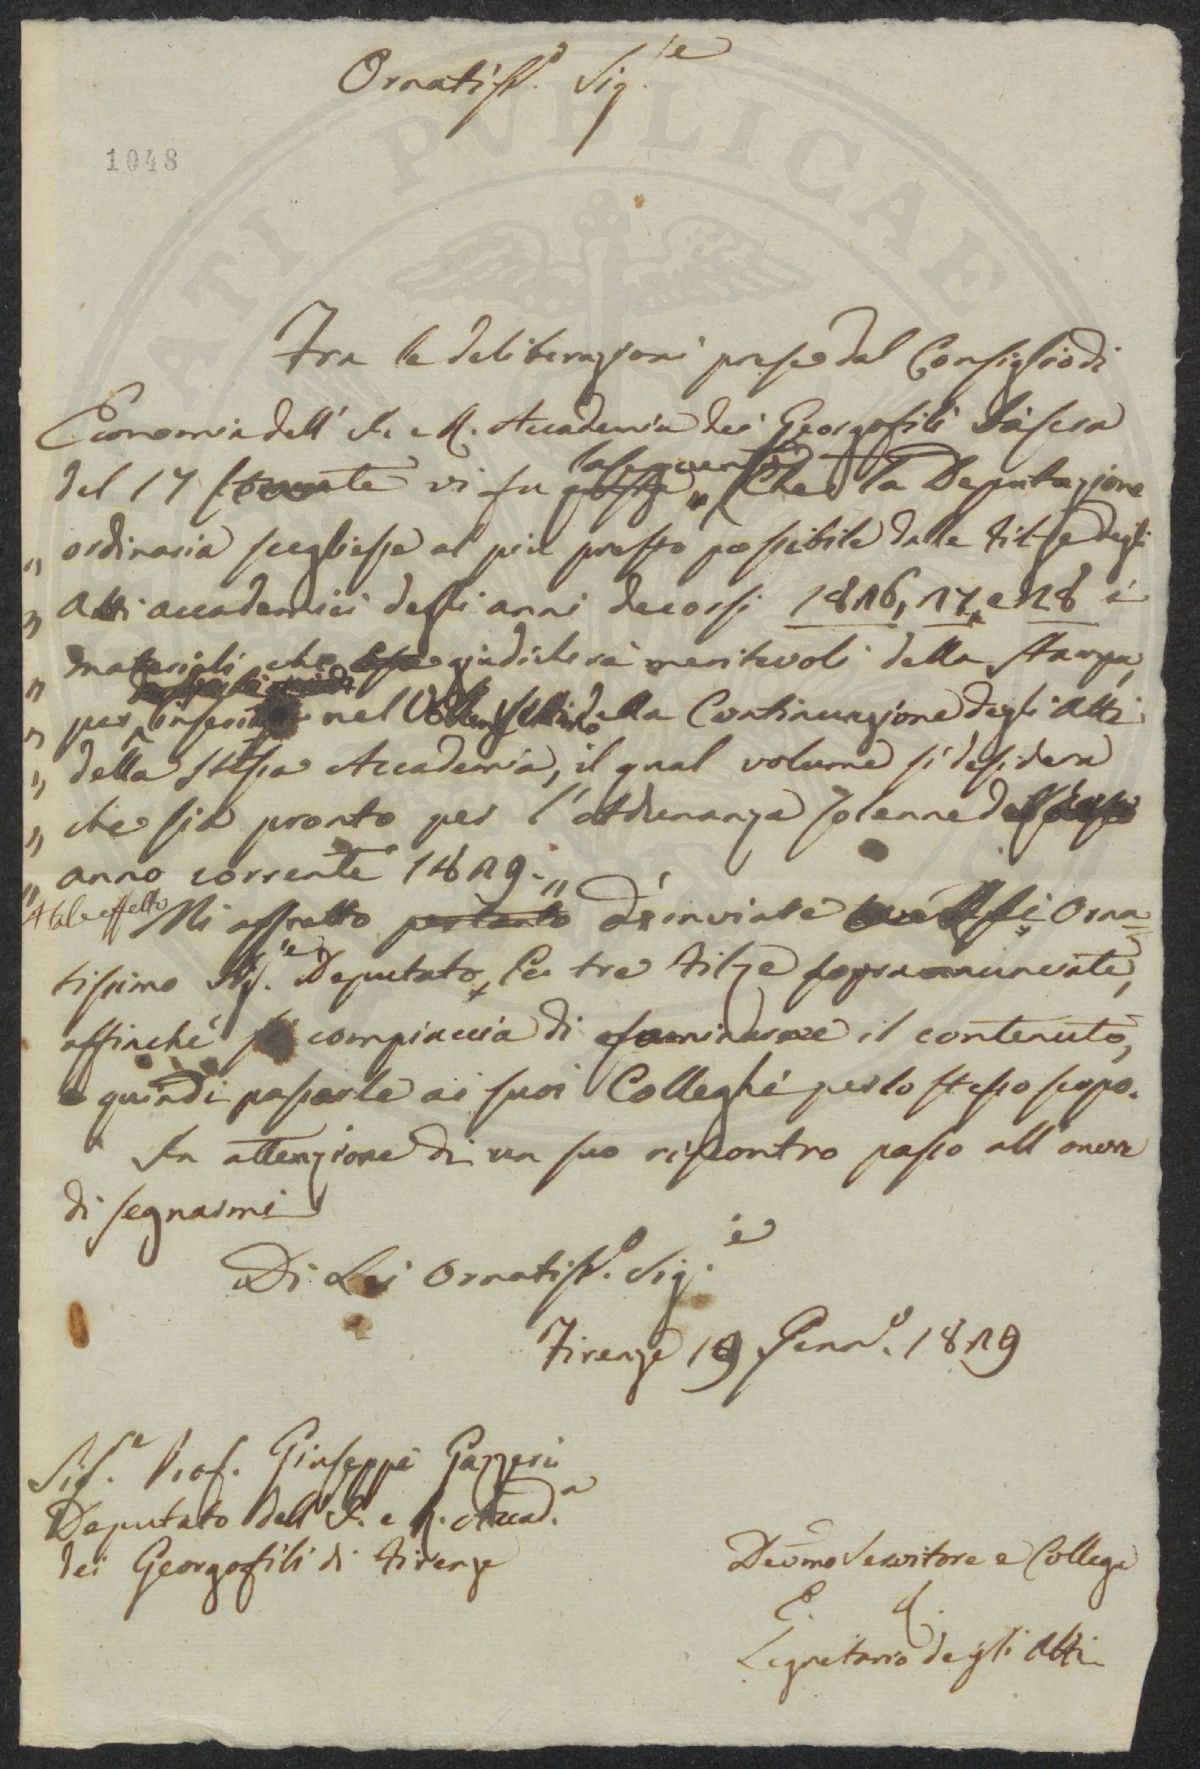 Ornatiss.º Sig.re
1048
ATI PVBLICAE
Fra le deliberazioni prese dal Consiglio di
Economia dell' I. e R. Accademia dei Georgofili la sera
del 17 vi fu la seguente „ Che la Deputazione
„ ordinaria scegliesse al più presto possibile dalle filze degli
„ Atti accademici degli anni decorsi 1826, 27, e 28 i
„ materiali che giudicherà meritevoli della stampa,
„ per nel della Continuazione degli Atti
„ della stessa Accademia, il qual volume si desidera
„ che sia pronto per l'Adunanza solenne
„ anno corrente 1829. „
A tal effetto Mi affretto pertanto d'inviare Orna=
tissimo Sig.re Deputato, le tre filze sopraannunciate,
affinché si compiaccia di esaminarne il contenuto,
e quindi passarle ai suoi Colleghi per lo stesso scopo.
In attenzione di un suo riscontro passo all'onore
di segnarmi
Di Lei Ornatiss.º Sig.re
Firenze 19 Genn.º 1829
Sig.re Prof. Giuseppe Gazzeri
Deputato dell' I. e R. Accad.a
dei Georgofili di Firenze
Devmo Servitore e Collega
Segretario degli Atti